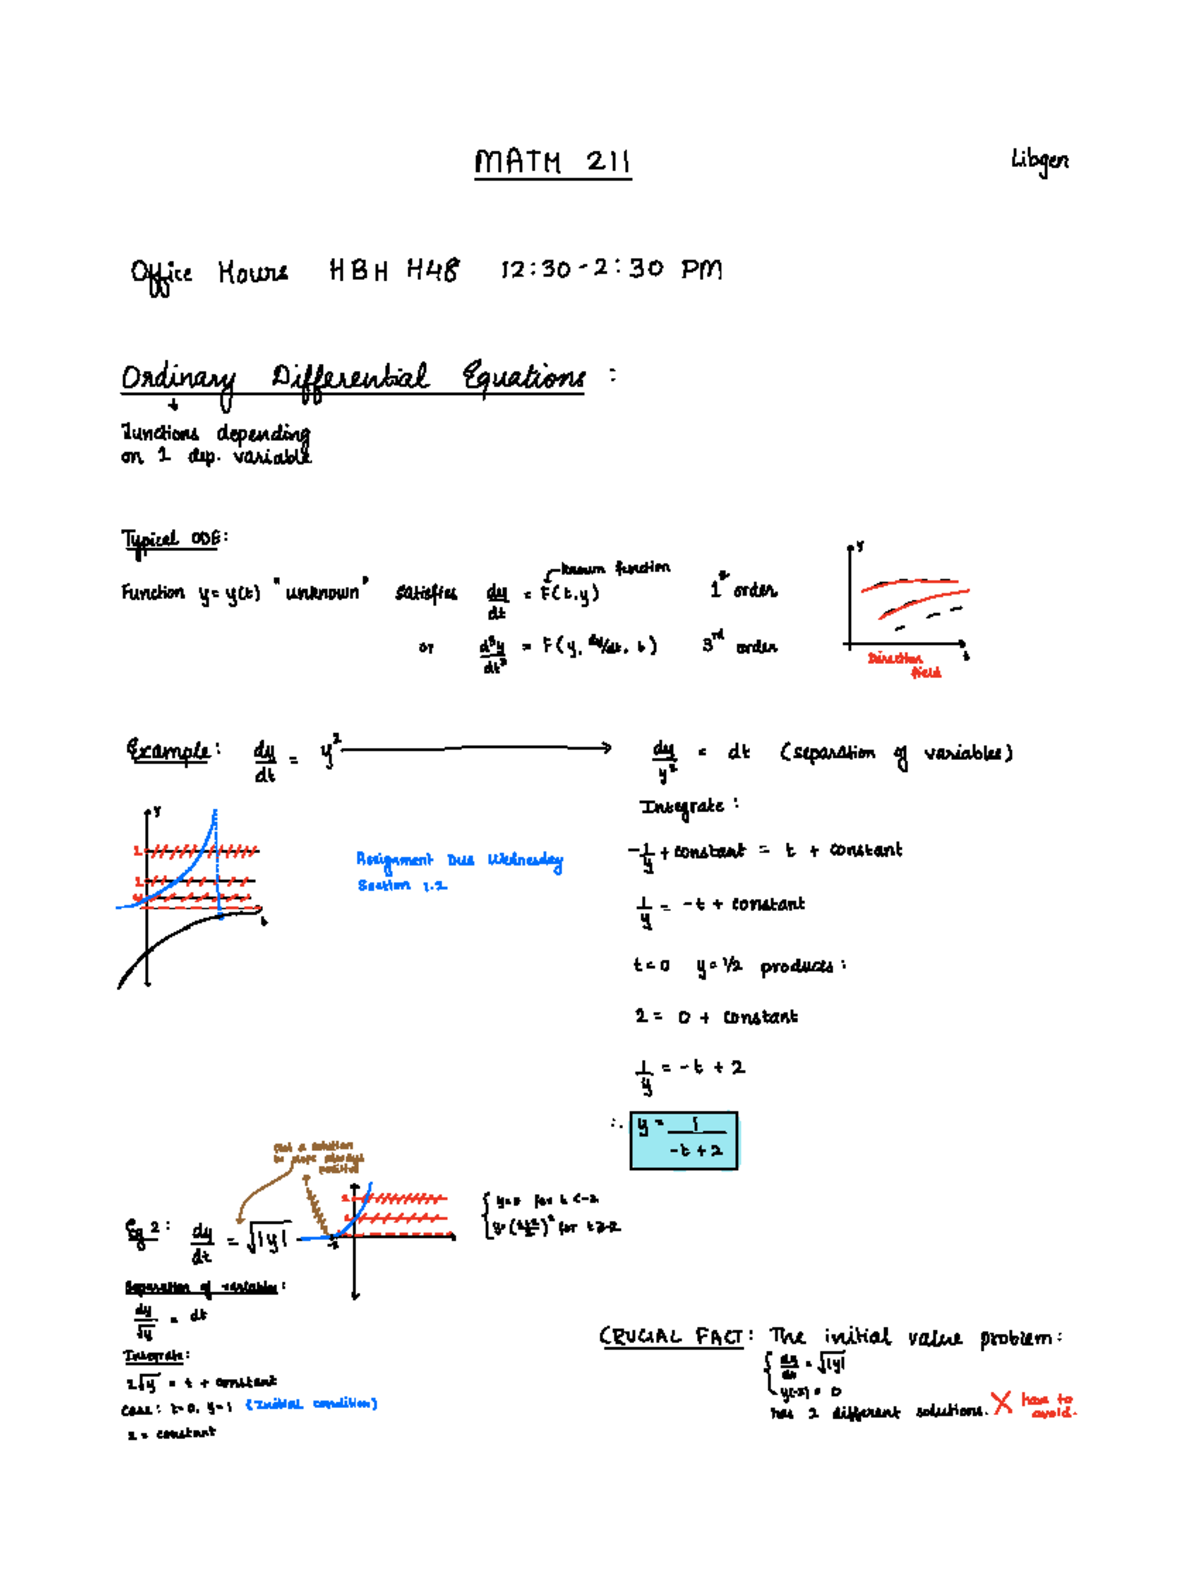 MATH 211
Libgen
Office Hours HBH H48 12:30-2:30 PM
Ordinary Differential Equations :
Functions depending
on 1 dep. variable
Typical ODE:
known function
Function y = y(t) "unknown" satisfies dy/dt = F(t,y) 1st order
or d³y/dt³ = F(y, dy/dt, t) 3rd order
y
t
Direction
field
Example: dy/dt = y²
dy/y² = dt (separation of variables)
Integrate :
-1/y + constant = t + constant
1/y = -t + constant
t=0 y=1/2 produces :
2 = 0 + constant
1/y = -t + 2
∴ y = 1/(-t+2)
y
t
Assignment Due Wednesday
Section 1.2
Not a solution
bc slope always
positive
Eg 2: dy/dt = √|y|
-2
{ y=0 for t<-2
y=((t+2)/2)² for t≥-2
Separation of variables :
dy/√y = dt
Integrate:
2√y = t + constant
Case: t=0, y=1 (Initial condition)
2 = constant
CRUCIAL FACT: The initial value problem:
{ dy/dt = √|y|
y(-2) = 0
has 2 different solutions. X have to
avoid.